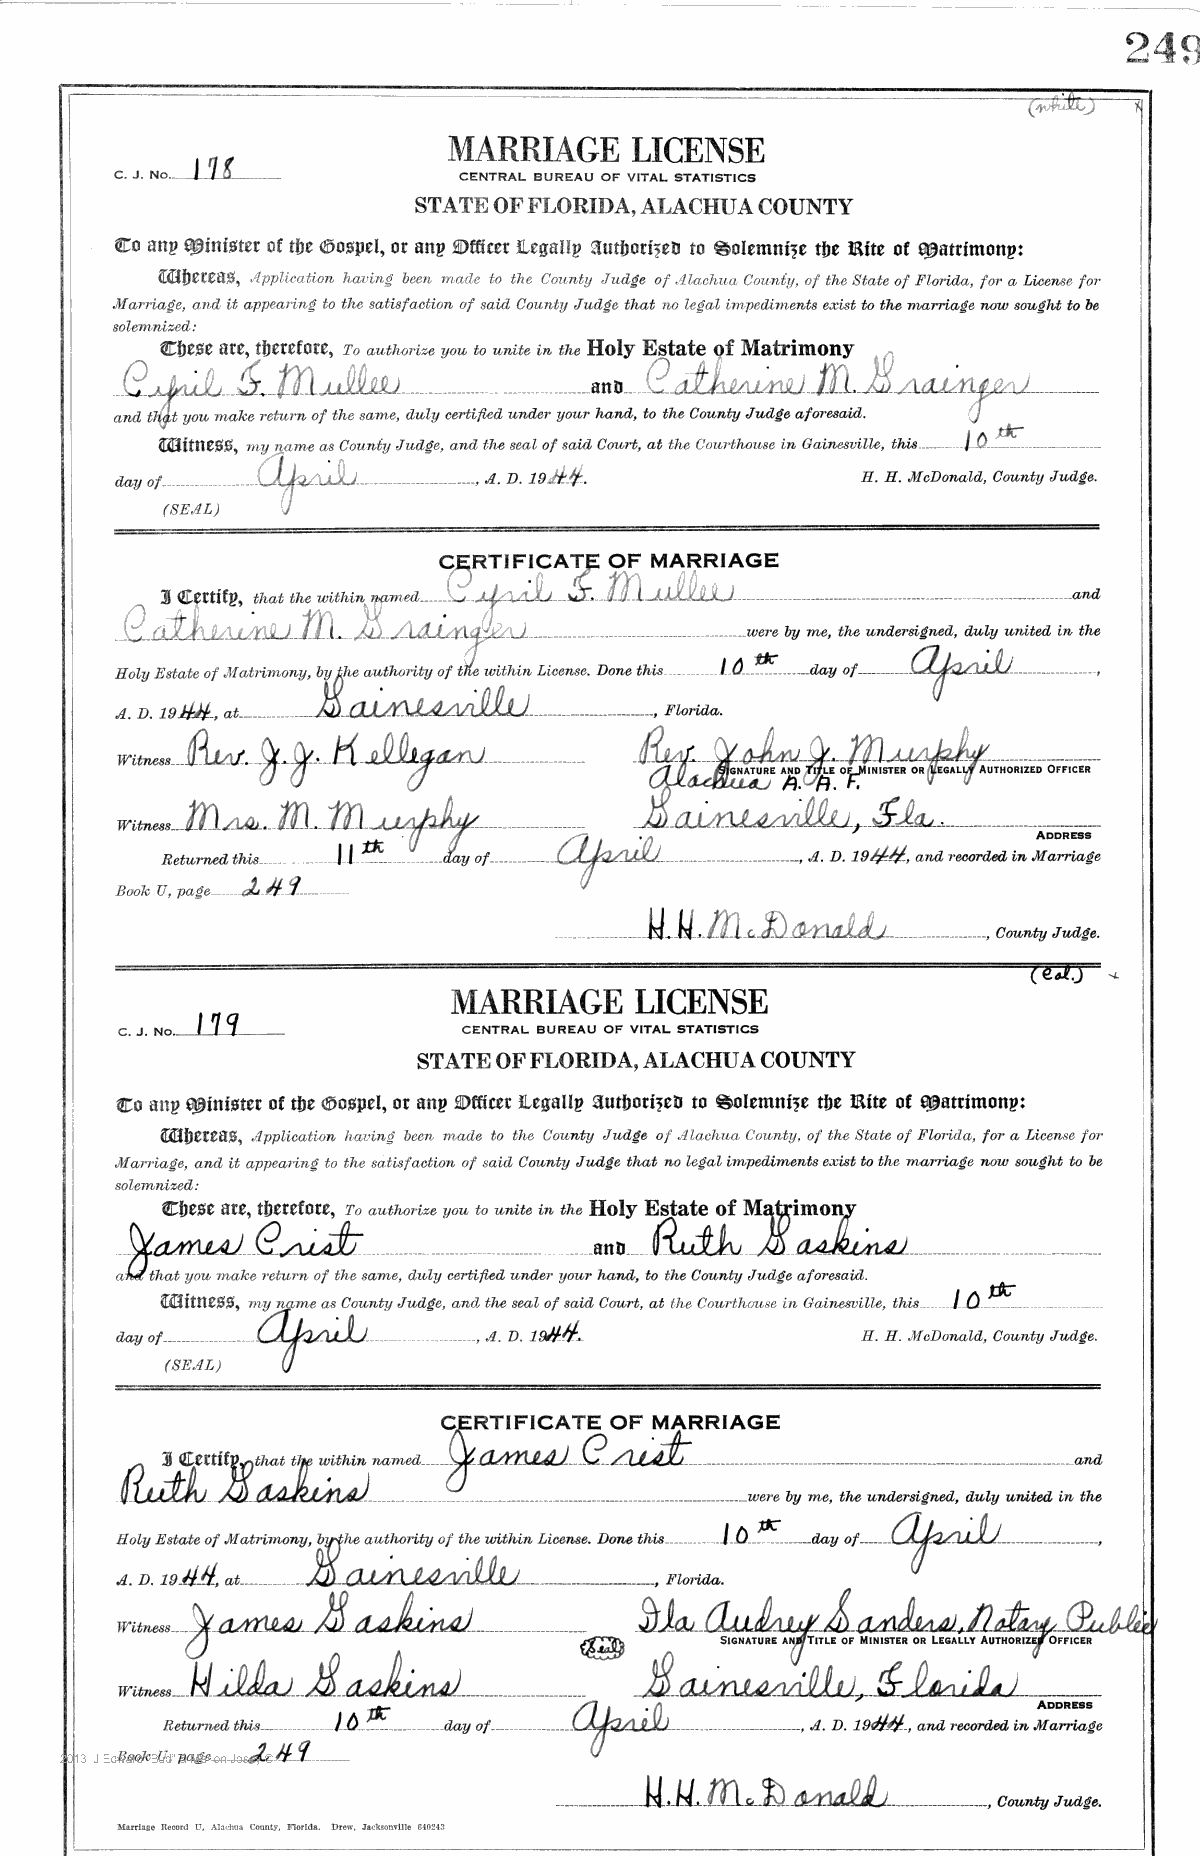 249
(white) x
MARRIAGE LICENSE
C. J. No. 178
CENTRAL BUREAU OF VITAL STATISTICS
STATE OF FLORIDA, ALACHUA COUNTY
To any Minister of the Gospel, or any Officer Legally Authorized to Solemnize the Rite of Matrimony:
Whereas, Application having been made to the County Judge of Alachua County, of the State of Florida, for a License for
Marriage, and it appearing to the satisfaction of said County Judge that no legal impediments exist to the marriage now sought to be
solemnized:
These are, therefore, To authorize you to unite in the Holy Estate of Matrimony
Cyril F. Mullee and Catherine M. Grainger
and that you make return of the same, duly certified under your hand, to the County Judge aforesaid.
Witness, my name as County Judge, and the seal of said Court, at the Courthouse in Gainesville, this 10th
day of April, A. D. 1944. H. H. McDonald, County Judge.
(SEAL)
CERTIFICATE OF MARRIAGE
I Certify, that the within named Cyril F. Mullee and
Catherine M. Grainger were by me, the undersigned, duly united in the
Holy Estate of Matrimony, by the authority of the within License. Done this 10th day of April,
A. D. 1944, at Gainesville, Florida.
Witness Rev. J. J. Kellegan Rev. John J. Murphy
SIGNATURE AND TITLE OF MINISTER OR LEGALLY AUTHORIZED OFFICER
Alachua A. A. F.
Witness Mrs. M. Murphy Gainesville, Fla.
ADDRESS
Returned this 11th day of April, A. D. 1944, and recorded in Marriage
Book U, page 249
H. H. McDonald, County Judge.
(Col.) x
MARRIAGE LICENSE
C. J. No. 179
CENTRAL BUREAU OF VITAL STATISTICS
STATE OF FLORIDA, ALACHUA COUNTY
To any Minister of the Gospel, or any Officer Legally Authorized to Solemnize the Rite of Matrimony:
Whereas, Application having been made to the County Judge of Alachua County, of the State of Florida, for a License for
Marriage, and it appearing to the satisfaction of said County Judge that no legal impediments exist to the marriage now sought to be
solemnized:
These are, therefore, To authorize you to unite in the Holy Estate of Matrimony
James Crist and Ruth Gaskins
and that you make return of the same, duly certified under your hand, to the County Judge aforesaid.
Witness, my name as County Judge, and the seal of said Court, at the Courthouse in Gainesville, this 10th
day of April, A. D. 1944. H. H. McDonald, County Judge.
(SEAL)
CERTIFICATE OF MARRIAGE
I Certify, that the within named James Crist and
Ruth Gaskins were by me, the undersigned, duly united in the
Holy Estate of Matrimony, by the authority of the within License. Done this 10th day of April,
A. D. 1944, at Gainesville, Florida.
Witness James Gaskins Ila Audrey Sanders, Notary Public
Seal SIGNATURE AND TITLE OF MINISTER OR LEGALLY AUTHORIZED OFFICER
Witness Hilda Gaskins Gainesville, Florida
ADDRESS
Returned this 10th day of April, A. D. 1944, and recorded in Marriage
Book U, page 249
H. H. McDonald, County Judge.
Marriage Record U, Alachua County, Florida. Drew, Jacksonville 640243